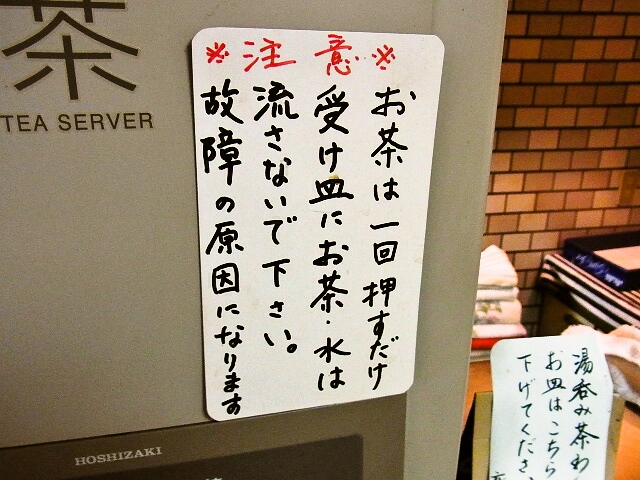 茶
TEA SERVER
※注意※
お茶は一回押すだけ
受け皿にお茶・水は
流さないで下さい。
故障の原因になります
HOSHIZAKI
湯呑み茶わ
お皿はこちら
下げてください